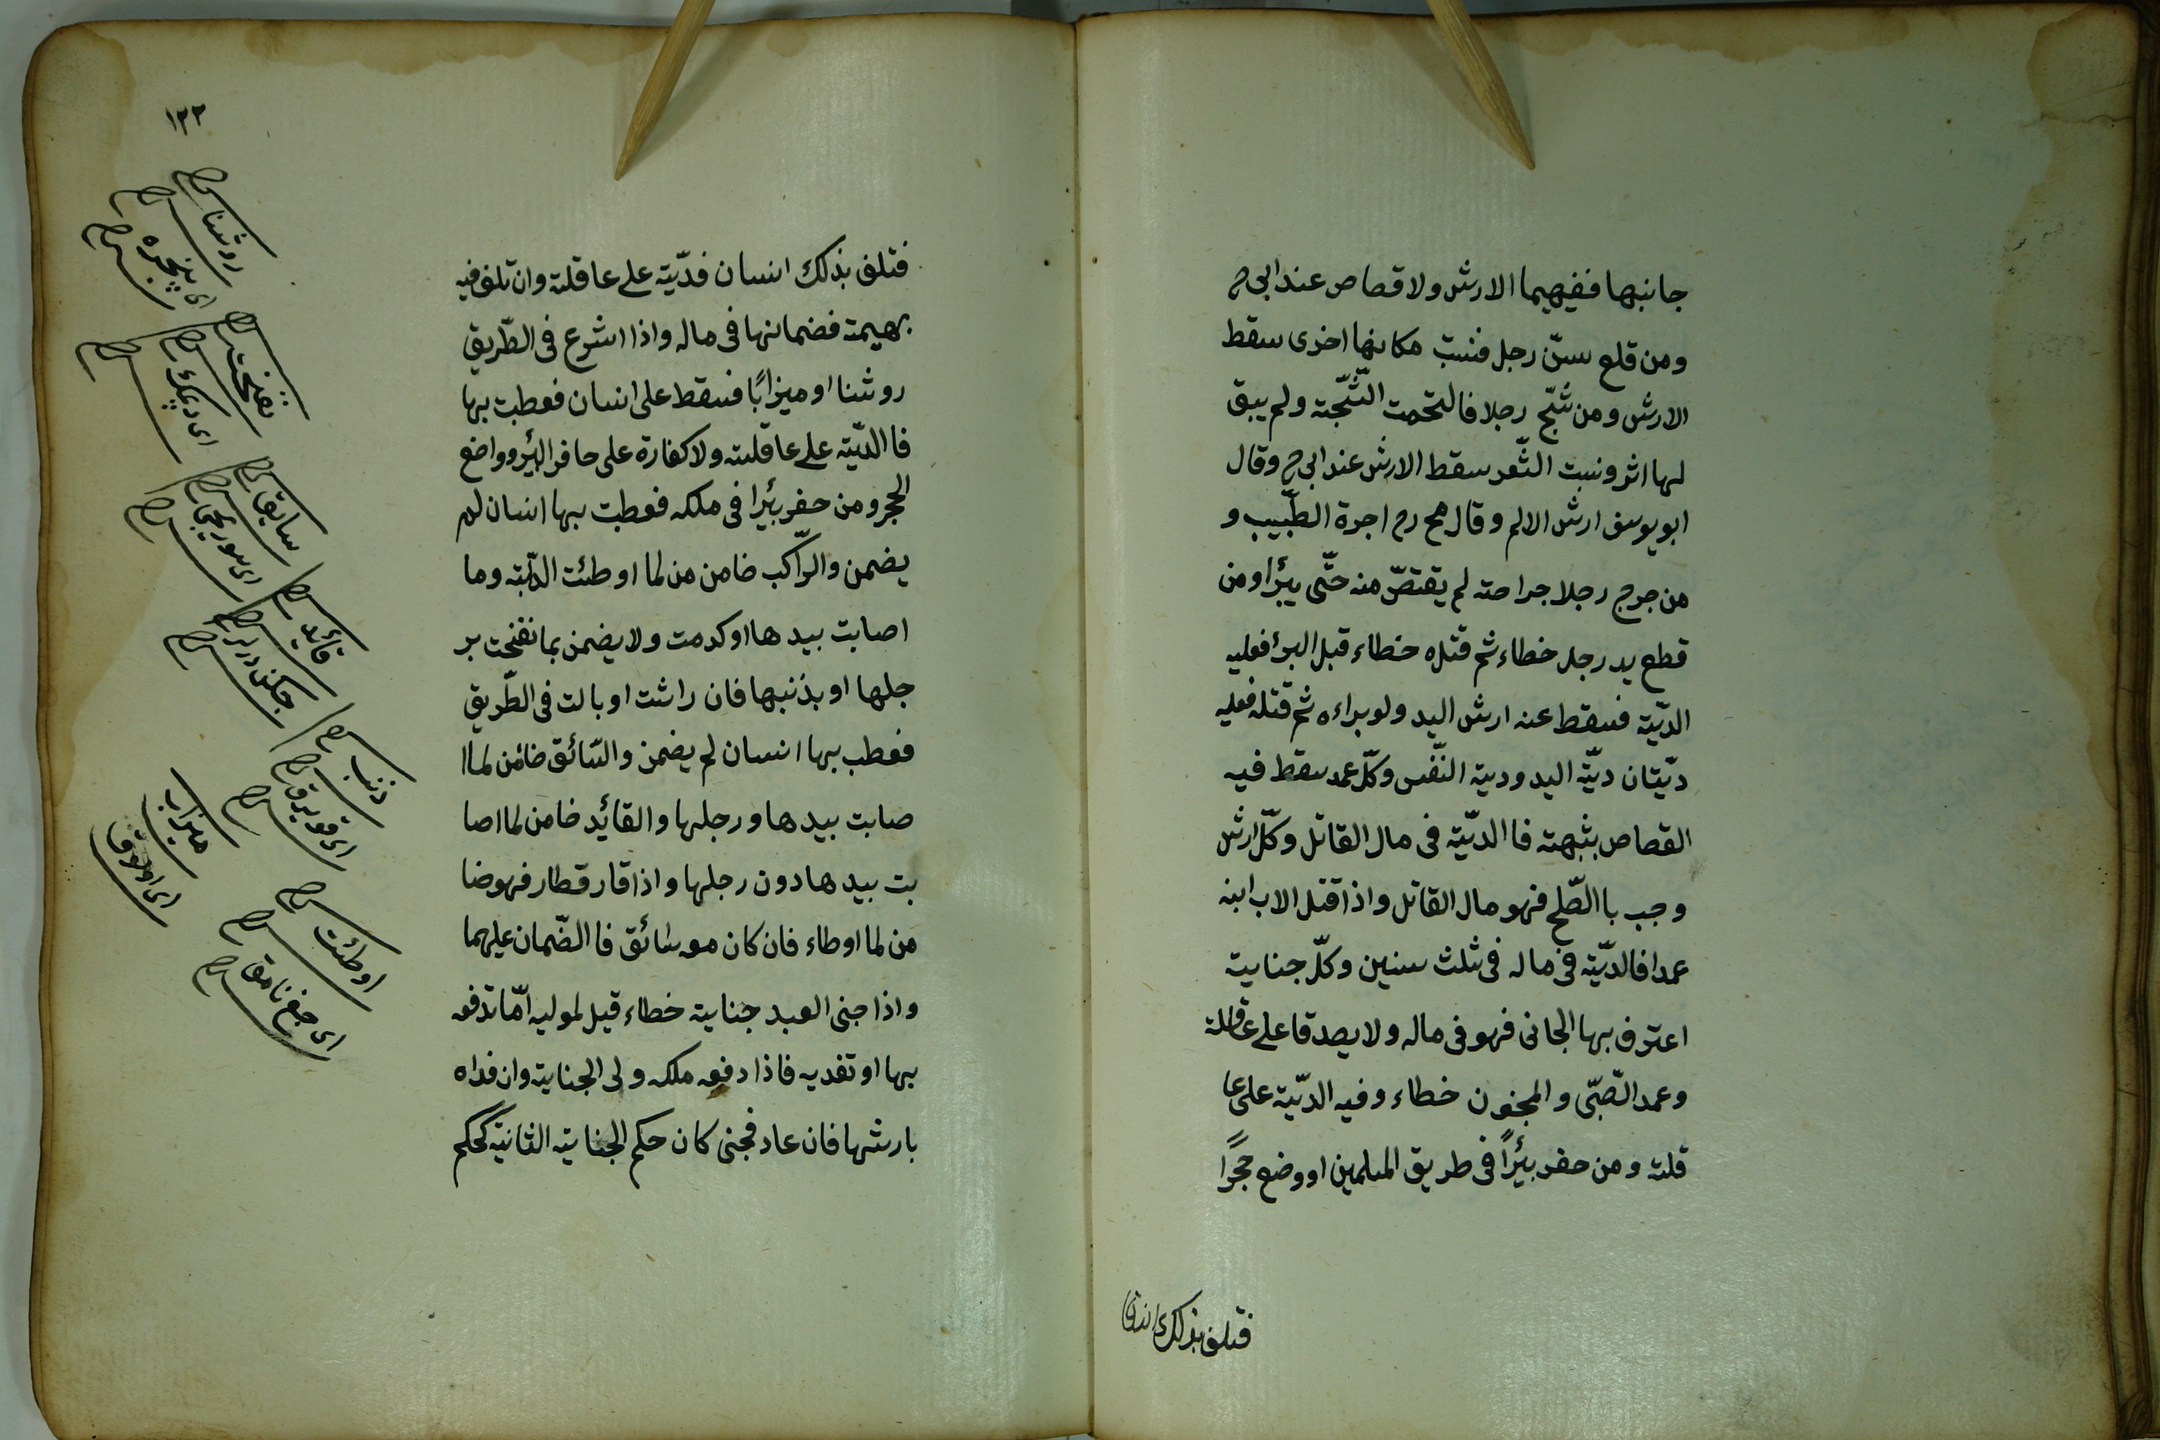 جانبها ففيهما الارش ولا قصاص عند ابى ح
ومن قلع سنّ رجل فنبتت مكانها اخرى سقط
الارش ومن شجّ رجلا فالتحمت الشّجّة ولم يبق
لها اثر ونبت الشّعر سقط الارش عند ابى ح وقال
ابو يوسف ارش الالم وقال مح رح اجرة الطّبيب و
من جرح رجلا جراحة لم يقتصّ منه حتّى يبرأ ومن
قطع يد رجل خطاء ثم قتله خطاء قبل البرأ فعليه
الديّة فسقط عنه ارش اليد ولو براءه ثم قتله فعليه
ديّتان ديّة اليد ودية النّفس وكلّ عمد سقط فيه
القصاص بشبهة فا الديّة فى مال القاتل وكلّ ارش
وجب با الصّلح فهو مال القاتل واذا قتل الاب ابنه
عمدا فالديّة فى ماله فى ثلث سنين وكلّ جناية
اعترف بها الجانى فهو فى ماله ولا يصدقا على عاقلة
وعمد الصّبّى والمجنون خطاء وفيه الديّة على عا
قلة ومن حفر بئرًا فى طريق المسلمين او وضع حجرًا
فتلف بذلك انسان
١٢٢
فتلف بذلك انسان فديّة على عاقلة وان تلف فيه
بهيمة فضمانها فى ماله واذا اشرع فى الطّريق
روشنا او ميزابًا فسقط على انسان فعطبت بها
فا الديّة على عاقلته ولا كفارة على حافر البئر وواضع
الحجر ومن حفر بئرا فى ملكه فعطبت بها انسان لم
يضمن والرّاكب ضامن من لما اوطئت الدّبّة وما
اصابت بيدها او كدمت ولا يضمن بما نفخت بر
جلها او بذنبها فان راثت او بالت فى الطّريق
فعطب بها انسان لم يضمن والسّائق ضامن لما ا
صابت بيدها ورجلها والقائد ضامن لما اصا
بت بيدها دون رجلها واذا قار قطار فهو ضا
من لما اوطاء فان كان معه سائق فا الضّمان عليهما
واذا جنى العبد جناية خطاء قيل لموليه امّا تدفعه
بها او تفديه فاذا دفعه ملكه ولى الجناية وان فداه
بارشها فان عاد فجنى كان حكم الجناية الثانية كحكم
روشنا
اى پنجره
نفخت
اى دپمك
سايق
قائد
ذنب
اى قويرق
ميزاب
اى اولوق
اوطئت